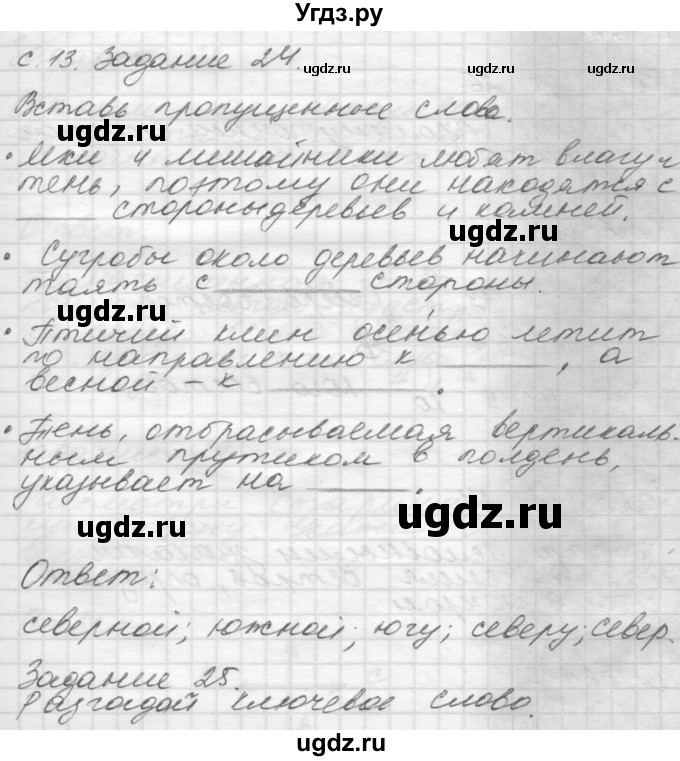 Угдз.ру
с. 13. Задание 24.
ugdz.ru ugdz.ru
Вставь пропущенные слова.
ugdz.ru ugdz.ru
• Мхи и лишайники любят влагу и
тень, поэтому они находятся с
_____ стороны деревьев и камней.
ugdz.ru
• Сугробы около деревьев начинают
таять с ________ стороны.
ugdz.ru
• Птичий клин осенью летит
по направлению к ______, а
весной – к ________.
• Тень, отбрасываемая вертикаль-
ным прутиком в полдень,
указывает на ______.
ugdz.ru
ugdz.ru
Ответ:
ugdz.ru
северной; южной; югу; северу; север.
Задание 25.
ugdz.ru
Разгадай ключевое слово.
ugdz.ru